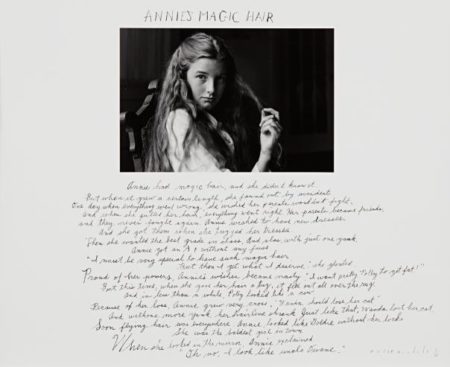 ANNIE'S MAGIC HAIR
Annie had magic hair, and she didn't know it
But when it grew a certain length, she found out by accident
One day when everything went wrong, she wished her parents wouldn't fight,
and when she pulled her hair, everything went right. Her parents became friends,
and they never fought again. Annie wished to have new dresses.
And she got them when she tugged her tresses
Then she wanted the best grade in class. And also, with just one yank,
Annie got an A+ without any fuss
"I must be very special to have such magic hair
But then I get what I deserve," she gloated
Proud of her powers, Annie's wishes became nasty "I want pretty Polly to get fat!"
But this time, when she gave her hair a tug, it fell out all over the rug
And in less than a while Polly looked like a cow
Because of her loss, Annie grew very cross, "Wanda should lose her cat"
And with one more yank, her hairline shrank Just like that, Wanda lost her cat
Soon flying hair was everywhere Annie looked like without her locks
She was the baldest girl in town
When she looked in the mirror Annie exclaimed
"Oh no, I look like uncle Duane."